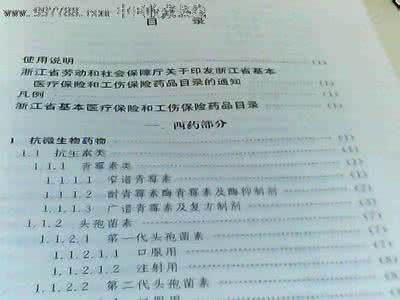 目 录
使用说明 (1)
浙江省劳动和社会保障厅关于印发浙江省基本
医疗保险和工伤保险药品目录的通知 (1)
凡例 (1)
浙江省基本医疗保险和工伤保险药品目录
一 西药部分
1 抗微生物药物 (1)
1.1 抗生素类 (1)
1.1.1 青霉素类
1.1.1.1 窄谱青霉素
1.1.1.2 耐青霉素酶青霉素及酶抑制剂
1.1.1.3 广谱青霉素及复方制剂
1.1.2 头孢菌素 (7)
1.1.2.1 第一代头孢菌素
1.1.2.1.1 口服用
1.1.2.1.2 注射用
1.1.2.2 第二代头孢菌素
口服用